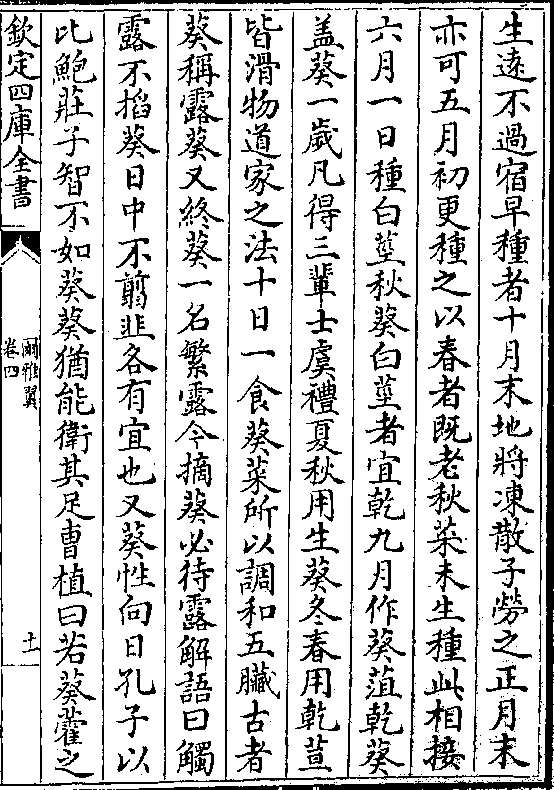 生遠不過宿早種者十月末地將凍散子勞之正月末
亦可五月初更種之以春者既老秋菜未生種此相接
六月一日種白莖秋葵白莖者宜乾九月作葵菹乾葵
盖葵一歲凡得三輩士虞禮夏秋用生葵冬春用乾荁
皆滑物道家之法十日一食葵菜所以調和五臟古者
葵稱露葵又終葵一名繁露今摘葵必待露解語曰觸
露不搯葵日中不翦韭各有宜也又葵性向日孔子以
比鮑莊子智不如葵葵猶能衛其足曹植曰若葵藿之
欽定四庫全書
爾雅翼
卷四
十一